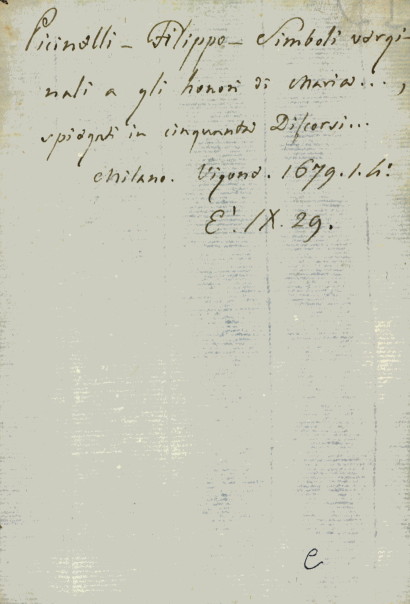 Picinelli - Filippo - Simboli vergi-
nali a gli honori di Maria...,
spiegati in cinquanta Discorsi...
Milano. Vigone. 1679. 1. 4°.
E'. IX. 29.
e